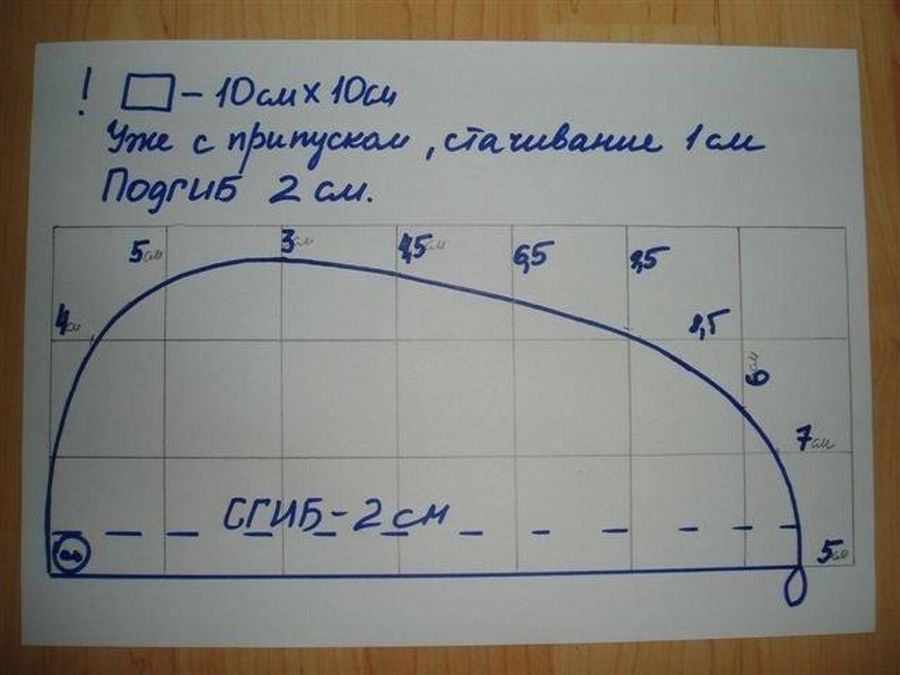 ! - 10 см х 10 см
Уже с припуском, стачивание 1 см
Подгиб 2 см.
5 см 3 см 4,5 см 6,5
4 см
6 см
7 см
СГИБ - 2 см
5 см